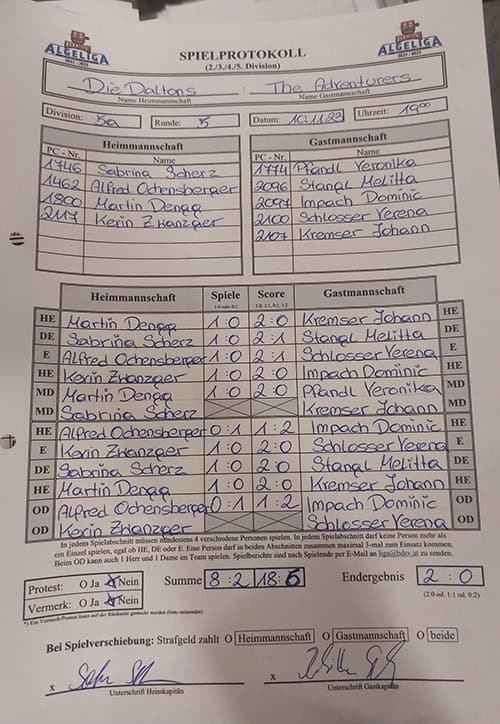 ALGELIGA
ALGELIGA
SPIELPROTOKOLL
(2./3./4./5. Division)
Die Daltons : The Adventurers
Name Heimmannschaft Name Gastmannschaft
Division: 5a Runde: 5 Datum: 10.11.22 Uhrzeit: 19⁰⁰
Heimmannschaft Gastmannschaft
PC - Nr. Name PC - Nr. Name
1746 Sabrina Scherz 1774 Pfandl Veronika
1462 Alfred Ochensberger 2096 Stangl Melitta
1800 Martin Dengg 2097 Impach Dominic
2117 Kerin Zwanzger 2100 Schlosser Verena
2107 Kremser Johann
Heimmannschaft Spiele Score Gastmannschaft
1:0 oder 0:1 2:0, 2:1, 0:2, 1:2
HE Martin Dengg 1:0 2:0 Kremser Johann HE
DE Sabrina Scherz 1:0 2:1 Stangl Melitta DE
E Alfred Ochensberger 1:0 2:1 Schlosser Verena E
HE Kerin Zwanzger 1:0 2:0 Impach Dominic HE
MD Martin Dengg 1:0 2:0 Pfandl Veronika MD
MD Sabrina Scherz Kremser Johann MD
HE Alfred Ochensberger 0:1 1:2 Impach Dominic HE
E Kerin Zwanzger 1:0 2:0 Schlosser Verena E
DE Sabrina Scherz 1:0 2:0 Stangl Melitta DE
HE Martin Dengg 1:0 2:0 Kremser Johann HE
OD Alfred Ochensberger 0:1 1:2 Impach Dominic OD
OD Kerin Zwanzger Schlosser Verena OD
In jedem Spielabschnitt müssen mindestens 4 verschiedene Personen spielen. In jedem Spielabschnitt darf keine Person mehr als
ein Einzel spielen, egal ob HE, DE oder E. Eine Person darf in beiden Abschnitten zusammen maximal 3-mal zum Einsatz kommen.
Beim OD kann auch 1 Herr und 1 Dame im Team spielen. Spielberichte sind nach Spielende per E-Mail an liga@bdsv.at zu senden.
Protest: O Ja O Nein Summe 8:2 18:6 Endergebnis 2:0
Vermerk: O Ja O Nein (2:0 od. 1:1 od. 0:2)
*) Ein Vermerk/Protest muss auf der Rückseite gemacht werden (bitte ankreuzen)
Bei Spielverschiebung: Strafgeld zahlt O Heimmannschaft O Gastmannschaft O beide
x x
Unterschrift Heimkapitän Unterschrift Gastkapitän